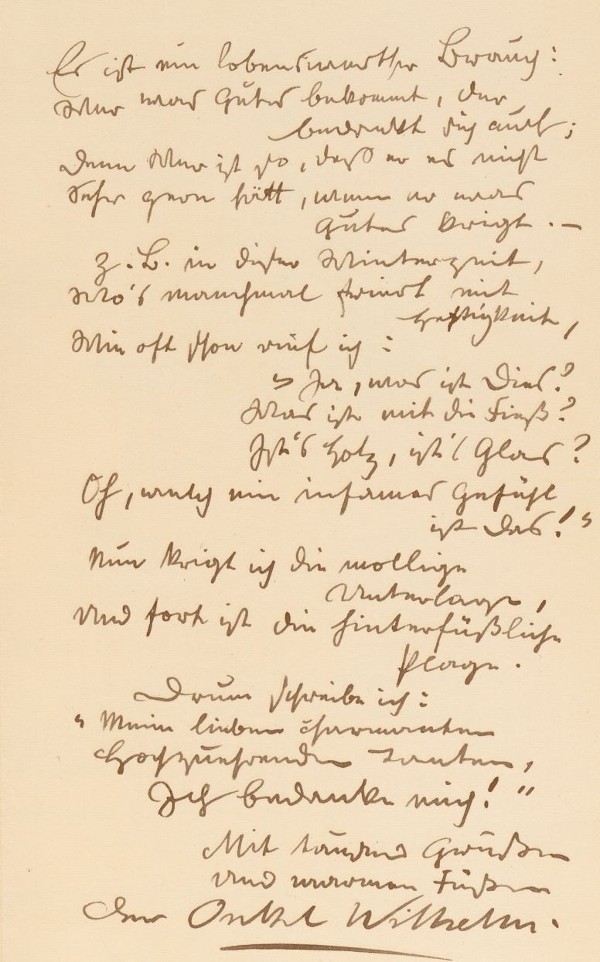 Es ist ein lobenswerther Brauch:
Wer was Gutes bekommt, der
bedankt sich auch;
Denn wer ist so, daß er es nicht
Sehr gern hätt, wenn er was
Gutes krigt. —
z. B. in dieser Winterzeit,
Wo's manchmal friert mit
Heftigkeit,
Wie oft schon rief ich:
„Ja, was ist dies?
Was ists mit die Füeß?
Ist's Holz, ist's Glas?
Oh, welch ein infames Gefühl
ist das!"
Nun krigt ich die mollige
Unterlage,
Und fort ist die hinterfüßliche
Plage.
Drum schreibe ich:
„Meine lieben charmanten
Hochzuehrenden Tanten,
Ich bedanke mich!"
Mit tausend Grüßen
und warmen Füßen
der Onkel Wilhelm.